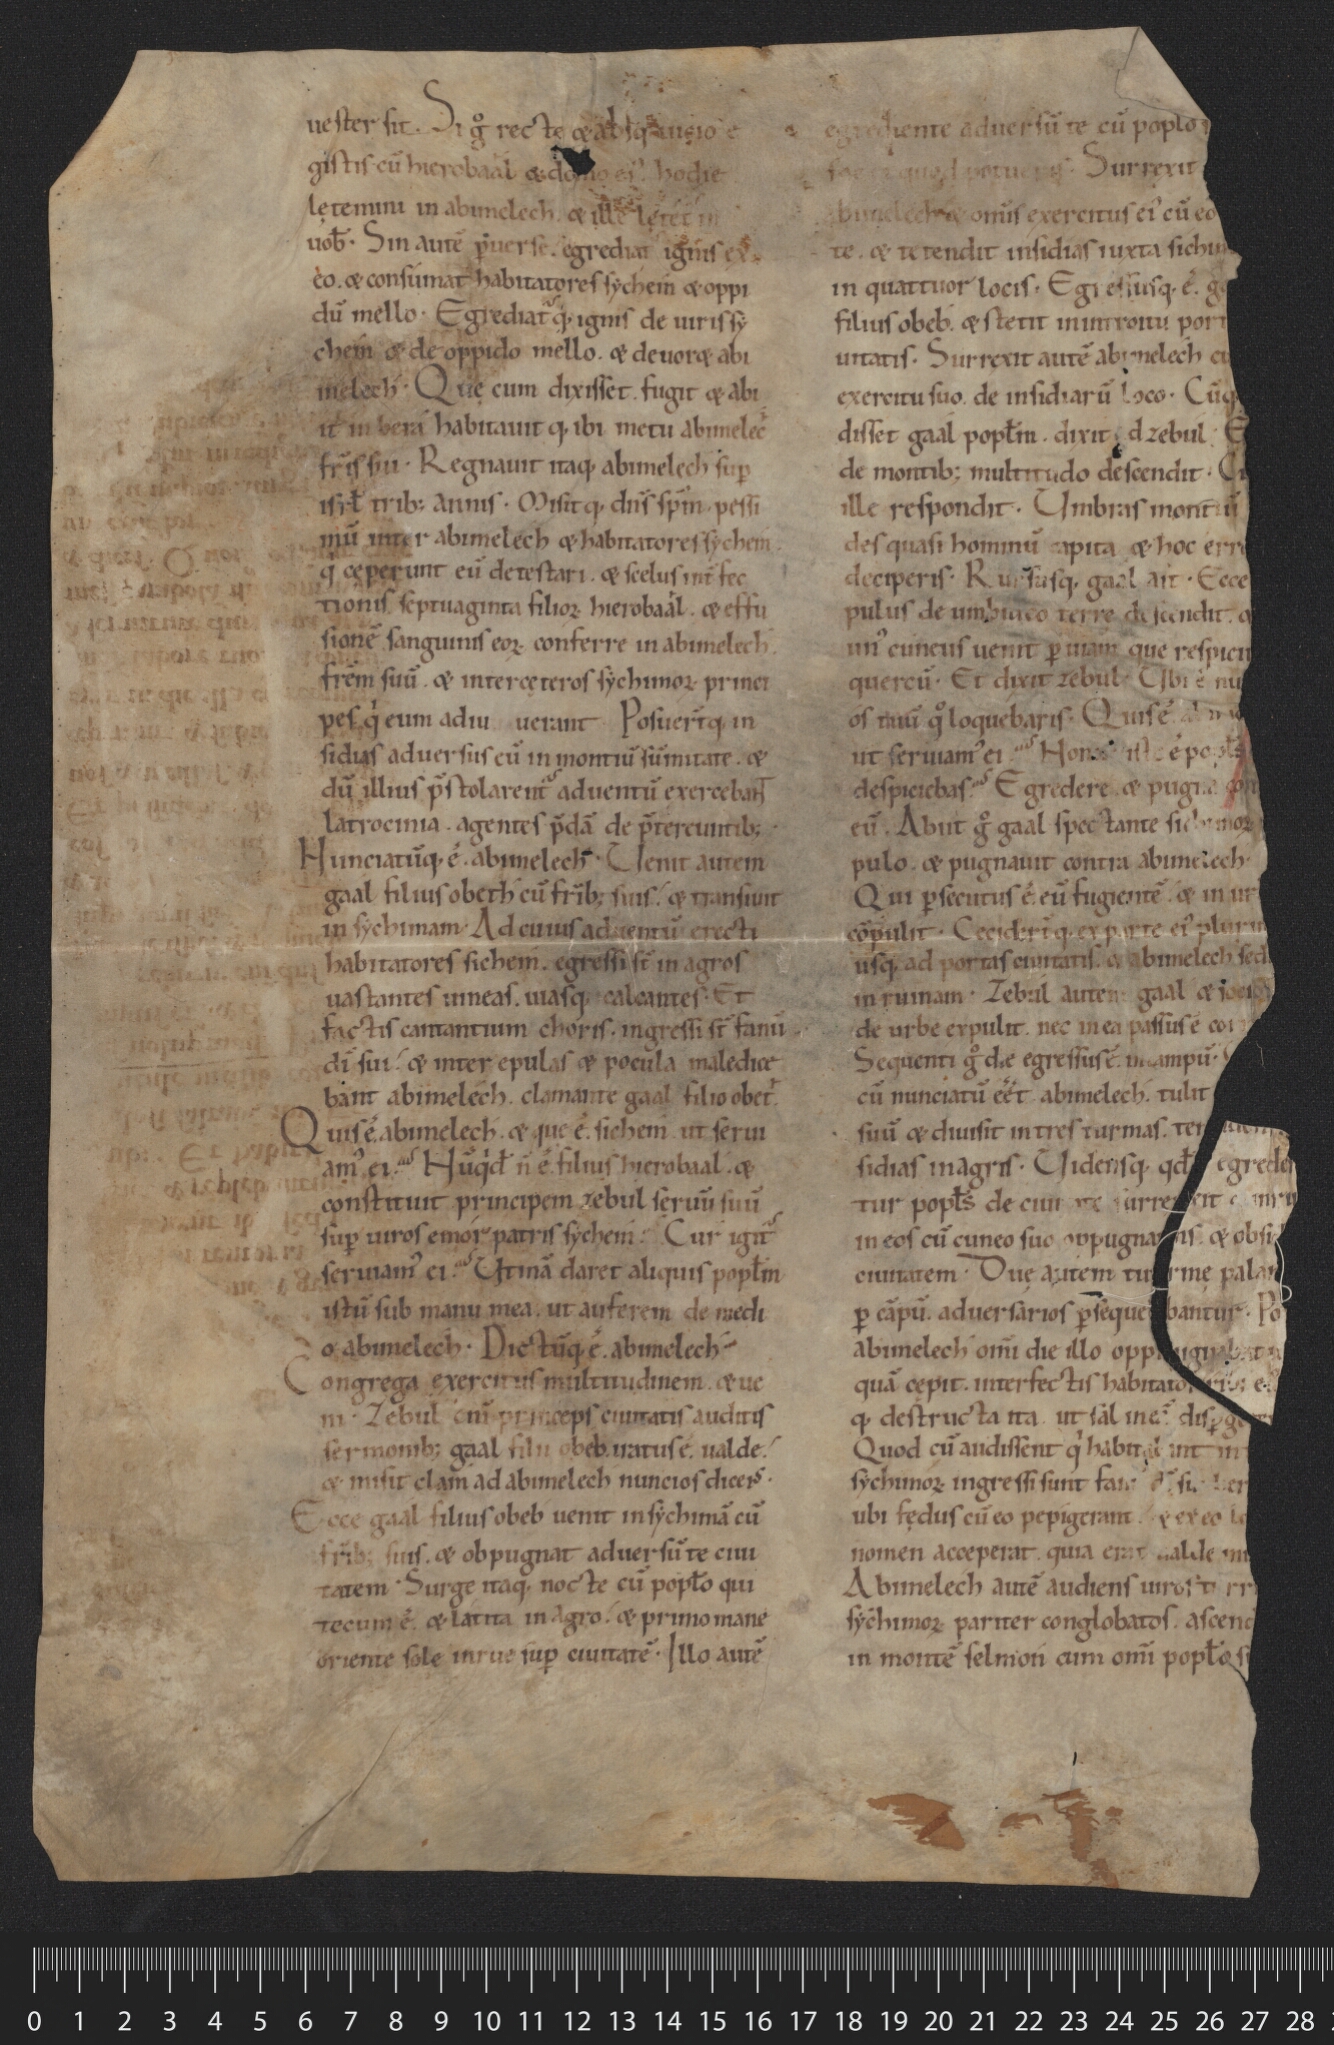 uester sit. Si gͦ recte & absq
gistis cū hierobaal & domo ei᾽. hodie
lętemini in abimelech. & ille lętet᾽ in
uob̄. Sin autē ꝑuerse. egrediat᾽ ignis ex
eo. & consumat habitatores sychem & oppi
dū mello. Egrediat᾽q; ignis de uiris sy
chem & de oppido mello. & deuor& abi
melech. Que cum dixisset. fugit & abi
it in bera habitauit q; ibi metu abimelec̄
fr̄is sui. Regnauit itaq; abimelech suꝑ
isrƚ trib; annis. Misitq; dn̄s sp̄m pessi
mū inter abimelech & habitatores sychem.
q̇ cęperunt eū detestari. & scelus int̄fec
tionis septuaginta filioꝝ hierobaal. & effu
sionē sanguinis eoꝝ conferre in abimelech
fr̄em suū. & inter cęteros sychimoꝝ princi
pes q̇ eum adiu uerant. Posuer̄tq; in
sidias aduersus eū in montiū sūmitate. &
dū illius p̄stolarent᾽ aduentū exercebant
latrocinia. agentes p̄dā de p̄tereuntib;
Nunciatūq; ē. abimelech. Uenit autem
gaal filius obeth cū fr̄ib; suis. & transiuit
in sychimam. Ad cuius aduentū erecti
habitatores sichem. egressi st̄ in agros
uastantes uineas. uuasq; calcantes. Et
factis cantantium choris. ingressi st̄ fanū
dī sui. & inter epulas & pocula maledice
bant abimelech. clamante gaal filio obet̄.
Quis ē. abimelech. & que ē. sichem ut serui
am᾽ ei. Nūq̇d n̄ ē. filius hierobaal. &
constituit principem zebul seruū suū
suꝑ uiros emor patris sychem. Cur igit᾽
seruiam᾽ ei. Utinā daret aliquis popƚm
istū sub manu mea. ut auferem de medi
o abimelech. Dictūq; ē. abimelech
Congrega exercitus multitudinem. & ue
ni. Zebul eni princeps ciuitatis auditis
sermonib; gaal filii obeb. iratus ē. ualde.
& misit clam ad abimelech nuncios dicens.
Ecce gaal filius obeb uenit in sychimā cū
fr̄ib; suis. & obpugnat aduersū te ciui
tatem. Surge itaq; nocte cū popƚo qui
tecum ē. & latita in agro. & primo mane
oriente sole inrue suꝑ ciuitatē. Illo autē
egrediente aduersū te cū popƚo
fac ei quod potueris. Surrexit
abimelech & omīs exercitus ei᾽ cū eo
te. & tetendit insidias iuxta sichi
in quattuor locis. Egressusq; ē. g
filius obeb. & stetit in introitu por
uitatis. Surrexit autē abimelech
exercitu suo. de insidiarū loco. Cūq;
disset gaal popƚm. dixit ad zebul.
de montib; multitudo descendit.
ille respondit. Umbras montiū
des quasi hominū capita & hoc err
deciperis. Rursusq; gaal ait. Ecce
pulus de umbilico terre descendit.
un᾽ cuneus uenit ꝑ uiam que respici
quercū. Et dixit zebul. Ubi ē nu
os tuū q̊ loquebaris. Quis ē
ut seruiam᾽ ei. Nonne iste ē popƚs
despiciebas. Egredere & pugna
eū. Abiit gͦ gaal spectante sichimoꝝ
pulo. & pugnauit contra abimelech.
Qui ꝑsecutus ē. eū fugientē. & in ur
cōpulit. Cecider̄tq; ex parte ei᾽ plurim
usq; ad portas ciuitatis. & abimelech sed
in rumam. Zebul autem gaal & socio
de urbe expulit. nec in ea passus ē
Sequenti gͦ die egressus ē. in campū.
cū nunciatū ēēt abimelech. tulit
suū & diuisit in tres turmas.
sidias in agris. Uidensq; qd̄ egrede
tur popƚs de ciuitate surrexit
in eos cū cuneo suo oppugnans. & obsi
ciuitatem. Due autem turme palan
ꝑ cāpū. aduersarios ꝑsequebantur. Po
abimelech omī die illo oppugnabat
quā cepit. interfectis habitatorib;
q; destructa ita. ut sal in ea dispge
Quod cū audissent q̇ habitabant in
sychimoꝝ ingressi sunt
ubi fędus cū eo pepigerant. & ex eo lo
nomen acceperat. quia erat ualde
Abimelech autē audiens uiros
sychimoꝝ pariter conglobatos. ascend
in montē selmon cum omī popƚo